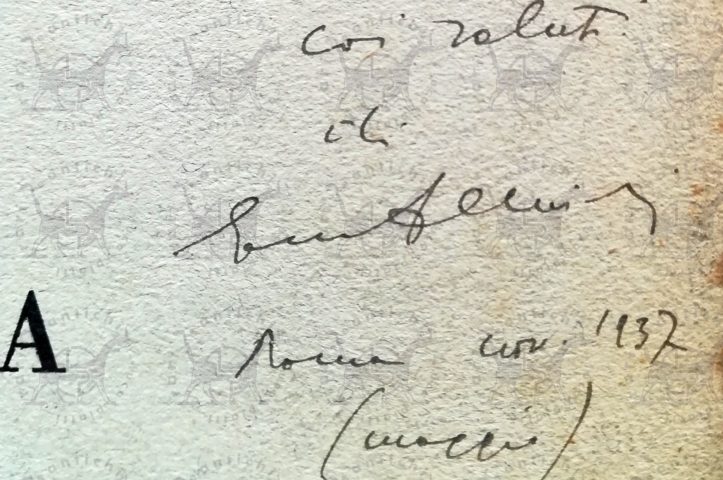 coi saluti
di
A
Roma nov. 1937
(maggio)